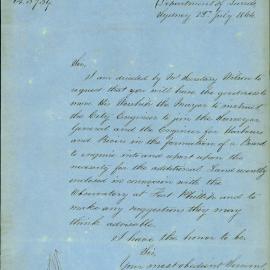 Department of Lands
Sydney 13th July 1864
Sir,
I am directed by Mr Secretary Wilson to
request that you will have the goodness to
move His Worship the Mayor to instruct
the City Engineer to join the Surveyor
General and the Engineer for Harbours
and Rivers in the formation of a Board
to enquire into and report upon the
necessity for the additional Land recently
enclosed in connexion with the
Observatory at Fort Phillip and to
make any suggestions they may
think advisable.
I have the honor to be,
Sir,
Your most obedient Servant